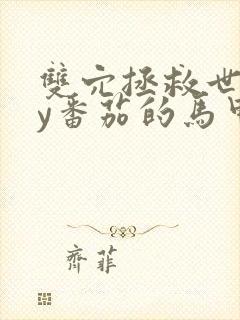 雙穴拯救世
y番茄的馬甲
齊菲